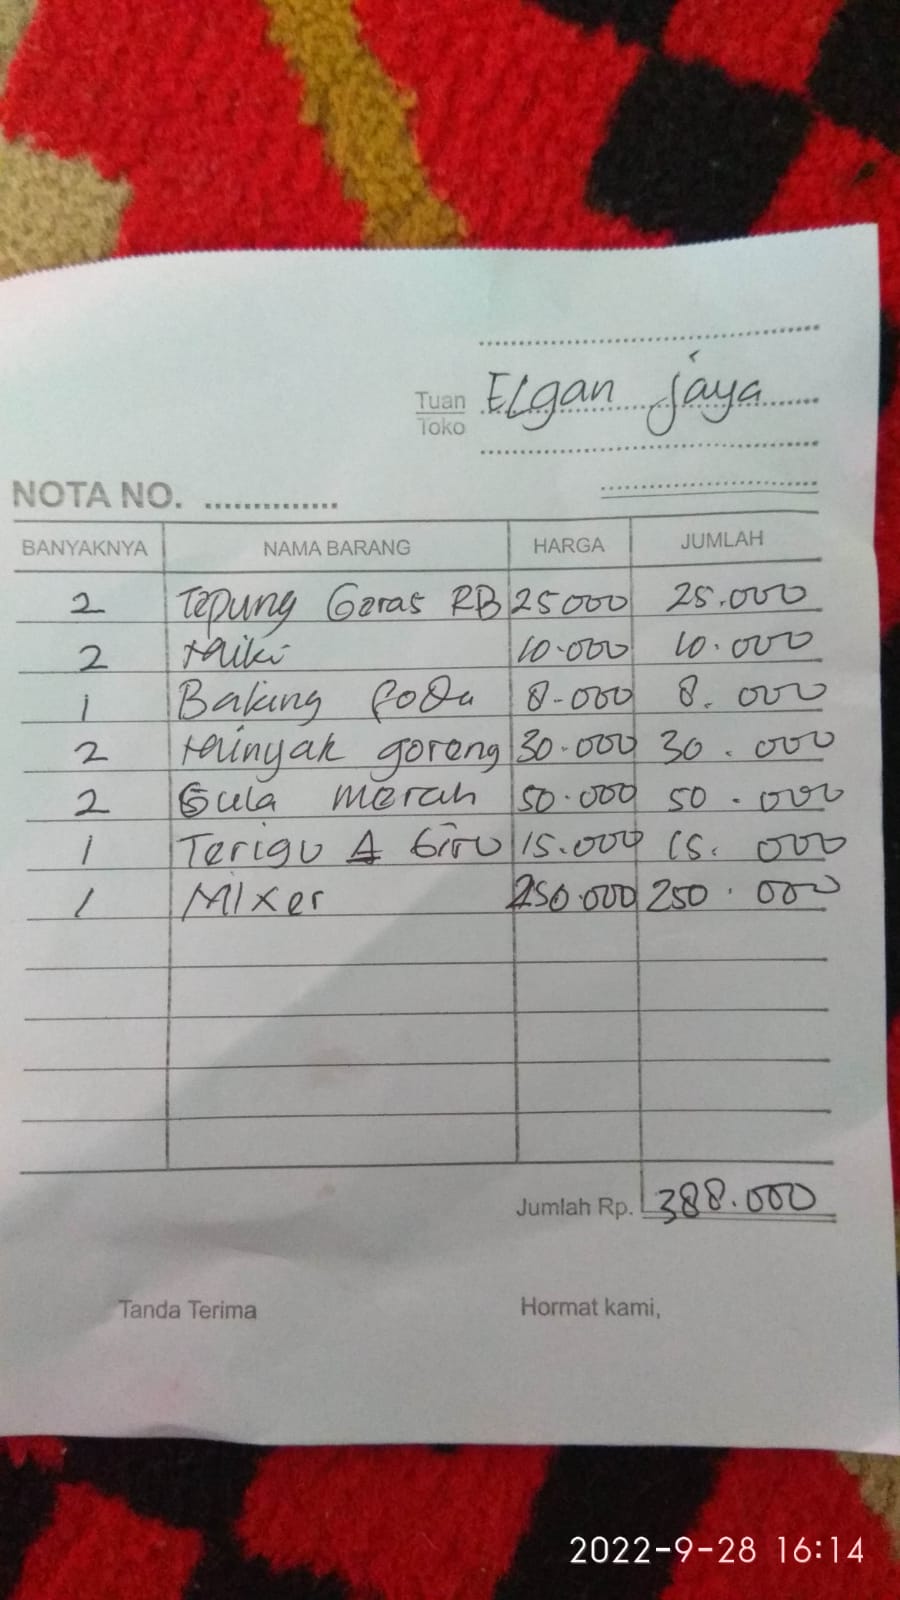 Tuan
Toko
Elgan jaya
NOTA NO. ..............
BANYAKNYA NAMA BARANG HARGA JUMLAH
2 Tepung Geras RB 25000 25.000
2 Miki 10.000 10.000
1 Baking soda 8.000 8.000
2 Minyak goreng 30.000 30.000
2 Gula merah 50.000 50.000
1 Terigu 15.000 15.000
1 Mixer 250.000 250.000
Jumlah Rp. 388.000
Tanda Terima Hormat kami,
2022-9-28 16:14